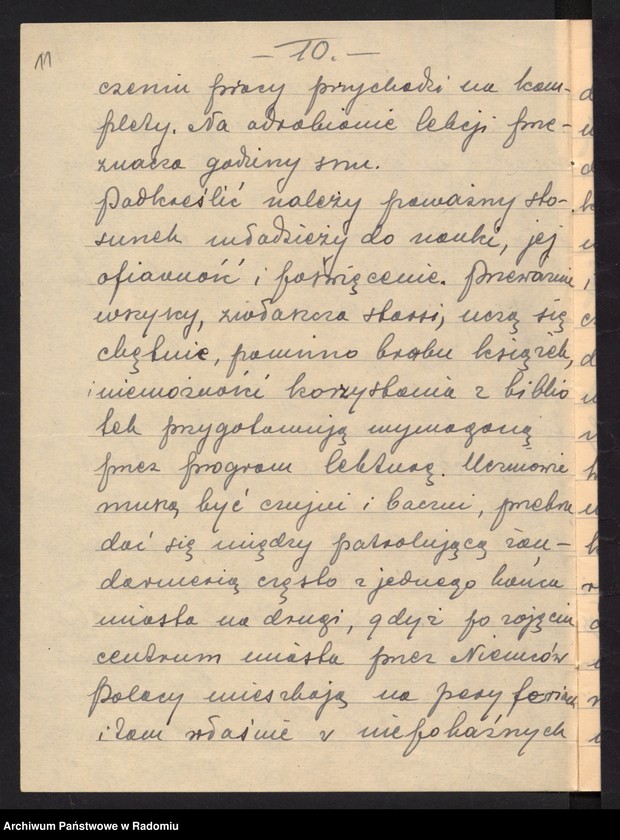 11
— 10. —
czeniu pracy przychodzi na kom-
plety. Na odrobienie lekcji prze-
znacza godziny snu.
Podkreślić należy poważny sto-
sunek młodzieży do nauki, jej
ofiarność i poświęcenie. Przeważnie
wszyscy, zwłaszcza starsi, uczą się
chętnie, pomimo braku książek,
i niemożności korzystania z biblio
tek przygotowują wymaganą
przez program lekturę. Uczniowie
muszą być czujni i baczni, przekra
dać się między patrolującą żan-
darmerią często z jednego końca
miasta na drugi, gdyż po zajęciu
centrum miasta przez Niemców
Polacy mieszkają na peryferiach
i tam właśnie w niepokaźnych
Archiwum Państwowe w Radomiu